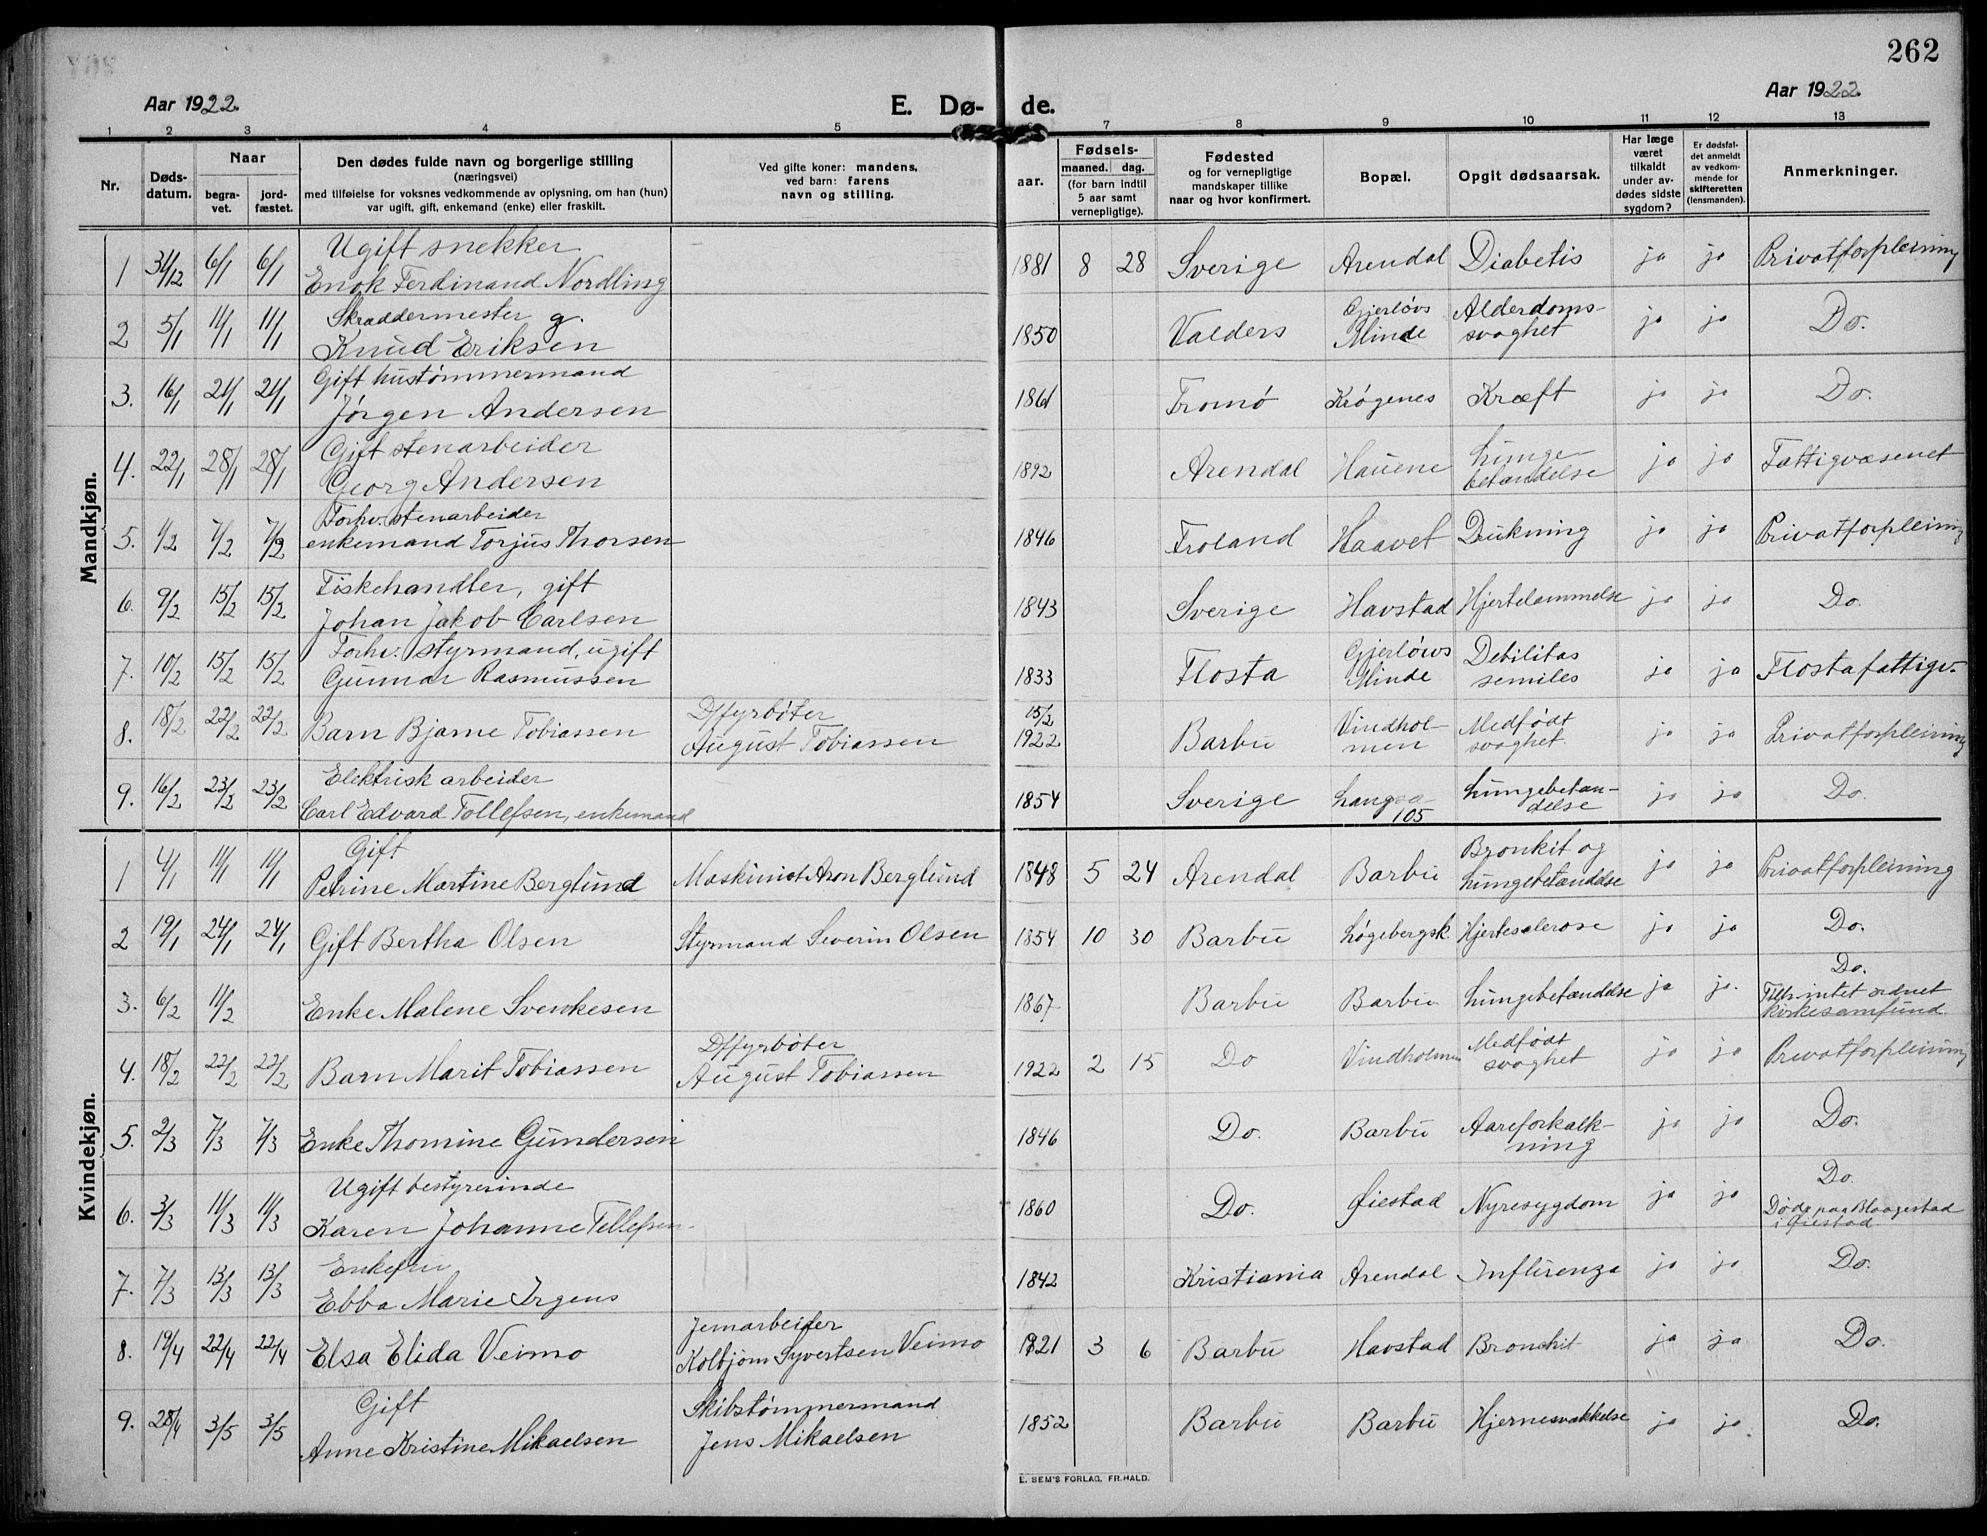 262
Aar 1922.
E. Dø- de.
Aar 1922.
1 2 3 4 5 7 8 9 10 11 12 13
Nr.
Døds-
datum.
Naar
begra-
vet.
jord-
fæstet.
Den dødes fulde navn og borgerlige stilling
(næringsvei)
med tilføielse for voksnes vedkommende av oplysning, om han (hun)
var ugift, gift, enkemand (enke) eller fraskilt.
Ved gifte koner: mandens,
ved barn: farens
navn og stilling.
aar.
Fødsels-
maaned. dag.
(for barn indtil
5 aar samt
vernepligtige).
Fødested
og for vernepligtige
mandskaper tillike
naar og hvor konfirmert.
Bopæl.
Opgit dødsaarsak.
Har læge
været
tilkaldt
under av-
dødes sidste
sygdom?
Er dødsfal-
det anmeldt
av vedkom-
mende for
skifteretten
(lensmanden).
Anmerkninger.
Mandkjøn.
Ugift snekker
1 31/12 6/1 6/1 Enok Ferdinand Nordling 1881 8 28 Sverige Arendal Diabetis ja ja Privatforpleining
Skræddermester g. Gjerløvs Alderdoms-
2 5/1 11/1 11/1 Knud Eriksen 1850 Valders Minde svaghet ja ja Do.
Gift hustømmermand
3. 16/1 21/1 21/1 Jørgen Andersen 1861 Tromø Krøgenes Kræft ja ja Do.
Gift stenarbeider Lunge-
4. 22/1 28/1 28/1 Georg Andersen 1892 Arendal Hauene betændelse ja ja Fattigvæsenet
Forhv. stenarbeider
5. 1/2 7/2 7/2 enkemand Torjus Thorsen 1846 Froland Haavet Drukning ja ja Privatforpleining
Fiskehandler, gift
6. 9/2 15/2 15/2 Johan Jakob Carlsen 1843 Sverige Havstad Hjertelammelse ja ja Do.
Forhv. styrmand, ugift Gjerløws Debilitas
7. 10/2 15/2 15/2 Gunnar Rasmussen 1833 Flosta Minde semiles ja ja Flosta fattigv.
D/ffyrbøter 15/2 Vindhol- Medfødt
8. 18/2 22/2 22/2 Barn Bjarne Tobiassen August Tobiassen 1922 Barbu men svaghet ja ja Privatforpleining
Elektrisk arbeider Lungebetæn-
9. 16/2 23/2 23/2 Carl Edvard Tollefsen, enkemand 1854 Sverige 105 delse ja ja Do.
Kvindekjøn.
Gift Bronkit og
1 4/1 11/1 11/1 Petrine Martine Berglund Maskinist Aron Berglund 1848 5 24 Arendal Barbu Lungebetændelse ja ja Privatforpleining
2 19/1 24/1 24/1 Gift Bertha Olsen Styrmand Severin Olsen 1854 10 30 Barbu Løgebergsk. Hjertesclerose ja ja Do.
Do.
3. 6/2 11/2 Enke Malene Svenkesen 1867 Barbu Barbu Lungebetændelse ja ja. Tilh. intet ordnet
kirkesamfund.
D/ffyrbøter Medfødt
4. 18/2 22/2 22/2 Barn Marit Tobiassen August Tobiassen 1922 2 15 Do Vindholmen svaghet ja ja Privatforpleining
5. 2/3 7/3 7/3 Enke Thomine Gundersen 1846 Do. Barbu Aareforkalk-
ning ja ja Do.
Ugift bestyrerinde Do.
6. 3/3 11/3 11/3 Karen Johanne Tellefsen 1860 Do. Øiestad Nyresygdom ja ja Døde paa Blaagestad
i Øiestad
Enkefru
7. 7/3 13/3 13/3 Ebba Marie Irgens 1842 Kristiania Arendal Influenza ja ja Do.
Jernarbeider
8. 19/4 22/4 22/4 Elsa Elida Veimo Kolbjørn Syvertsen Veimo 1921 3 6 Barbu Havstad Bronchit ja ja Do.
Gift Skibstømmermand
9. 28/4 3/5 3/5 Anne Kristine Mikaelsen Jens Mikaelsen 1852 Barbu Barbu Hjernesvækkelse ja ja Do.
E. SEM'S FORLAG, FR.HALD.